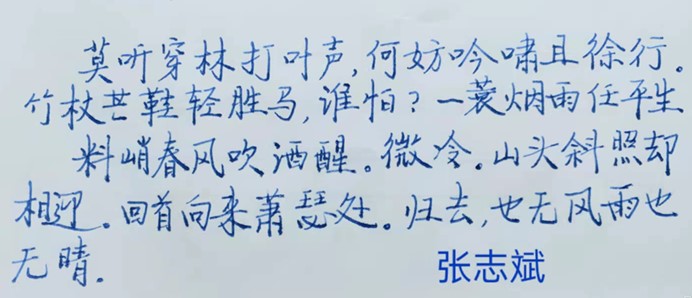 莫听穿林打叶声,何妨吟啸且徐行。
竹杖芒鞋轻胜马,谁怕?一蓑烟雨任平生
料峭春风吹酒醒。微冷。山头斜照却
相迎。回首向来萧瑟处。归去,也无风雨也
无晴.
张志斌